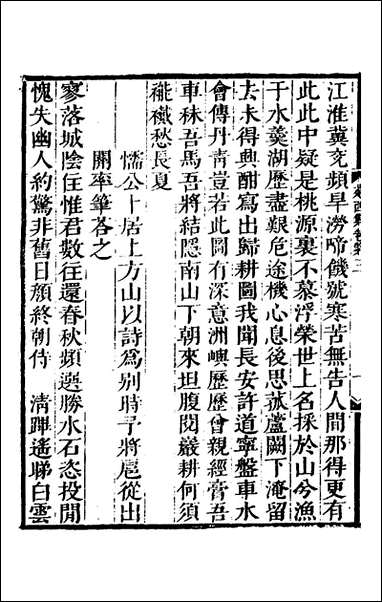 江淮冀兗頻旱澇啼饑號寒苦無告人間那得更有
此此中疑是桃源裏不慕浮榮世上名採於山兮漁
于水龔湖歷盡艱危途機心息後思菰蘆闕下淹留
去未得典酣寫出歸耕圖我聞長安許道寧盤車水
會傳丹青豈若此圖有深意洲嶼歷歷曾親經膏吾
車秣吾馬吾將結隱南山下朝來坦腹閱巖耕何須
襹襶愁長夏
懦公卜居上方山以詩為別時予將扈從出
關率筆荅之
寥落城陰住惟君數往還春秋頻選勝水石恣投閒
愧失幽人約驚非舊日顏終朝侍 清蹕遙睇白雲